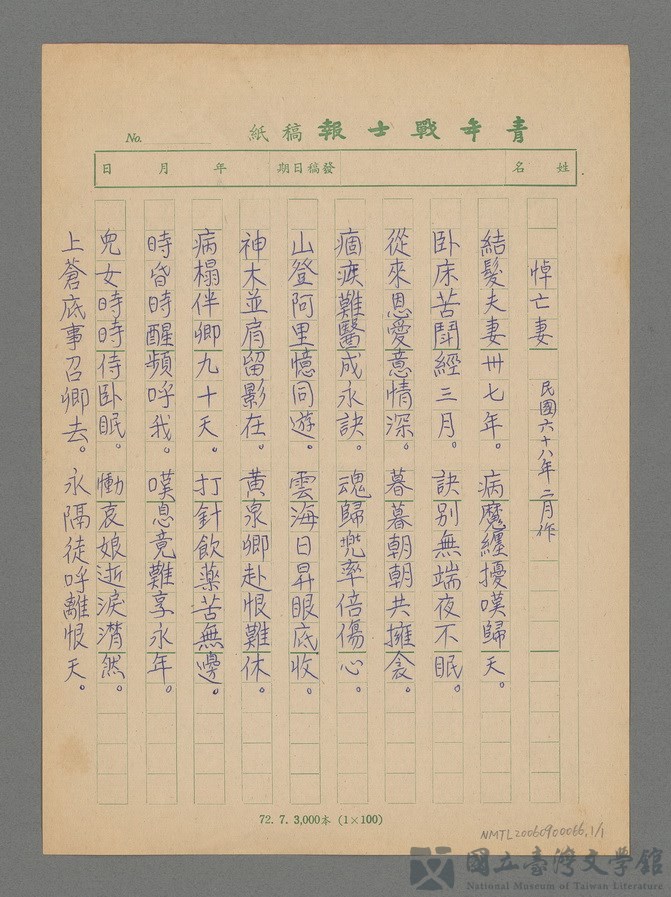 青年戰士報稿紙
No.
姓名 發稿日期 年 月 日
悼亡妻 民國六十八年二月作
結髮夫妻卅七年。病魔纏擾嘆歸天。
臥床苦鬪經三月。訣別無端夜不眠。
從來恩愛意情深。暮暮朝朝共擁衾。
痼疾難醫成永訣。魂歸兜率倍傷心。
山登阿里憶同遊。雲海日昇眼底收。
神木並肩留影在。黃泉卿赴恨難休。
病榻伴卿九十天。打針飲藥苦無邊。
時昏時醒頻呼我。嘆息竟難享永年。
兒女時時侍臥眠。慟哀娘逝淚潸然。
上蒼底事召卿去。永隔徒呼離恨天。
72. 7. 3,000本 (1×100)
NMTL20060900066.1/1
國立臺灣文學館
National Museum of Taiwan Literature